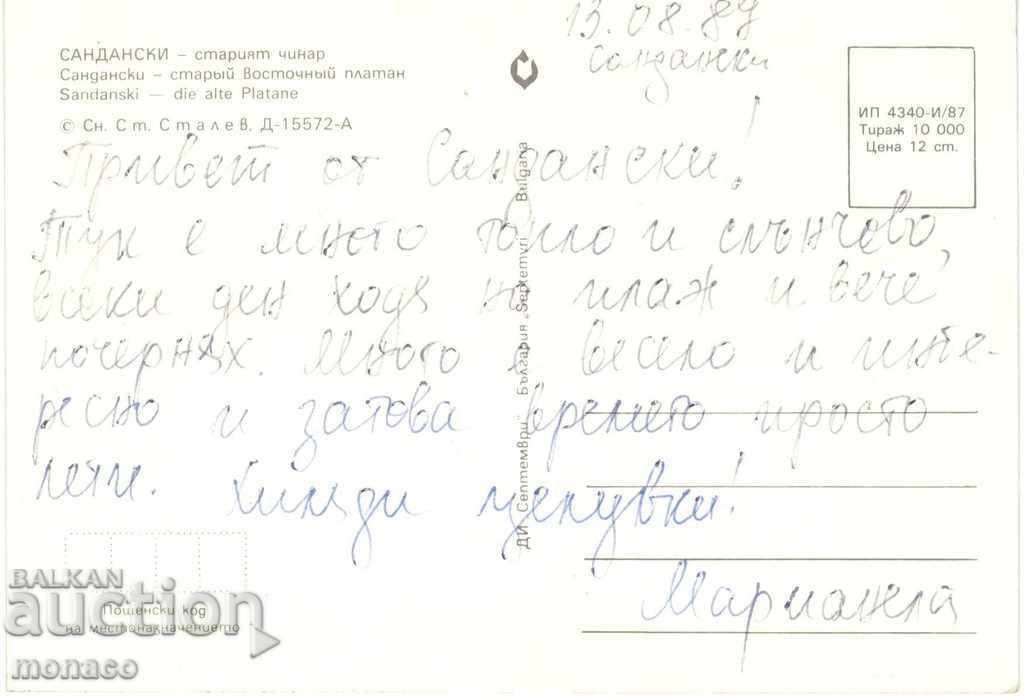 13.08.89
Сандански
САНДАНСКИ – старият чинар
Сандански – старый Восточный платан
Sandanski — die alte Platane
© Сн. Ст. Сталев, Д-15572-А
ИП 4340-И/87
Тираж 10 000
Цена 12 ст.
Привет от Сандански!
Тук е много топло и слънчево,
всеки ден ходя на плаж и вече
почернях. Много е весело и инте-
ресно и затова времето просто
лети. Хиляди целувки!
Мариянела
ДИ Септември България Septemvri Bulgaria
Пощенски код
на местоназначението
BALKAN
auction
monaco